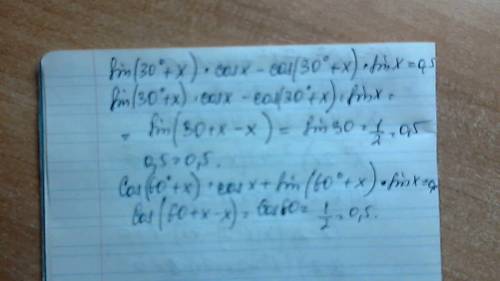 sin(30°+x)·cosx-cos(30°+x)·sinx=0,5
sin(30°+x)·cosx-cos(30°+x)·sinx=
= sin(30+x-x) = sin30 = 1/2 = 0,5
0,5=0,5.
Cos(60°+x)·cosx+sin(60°+x)·sinx=0,
Cos(60+x-x)=Cos60= 1/2 = 0,5.